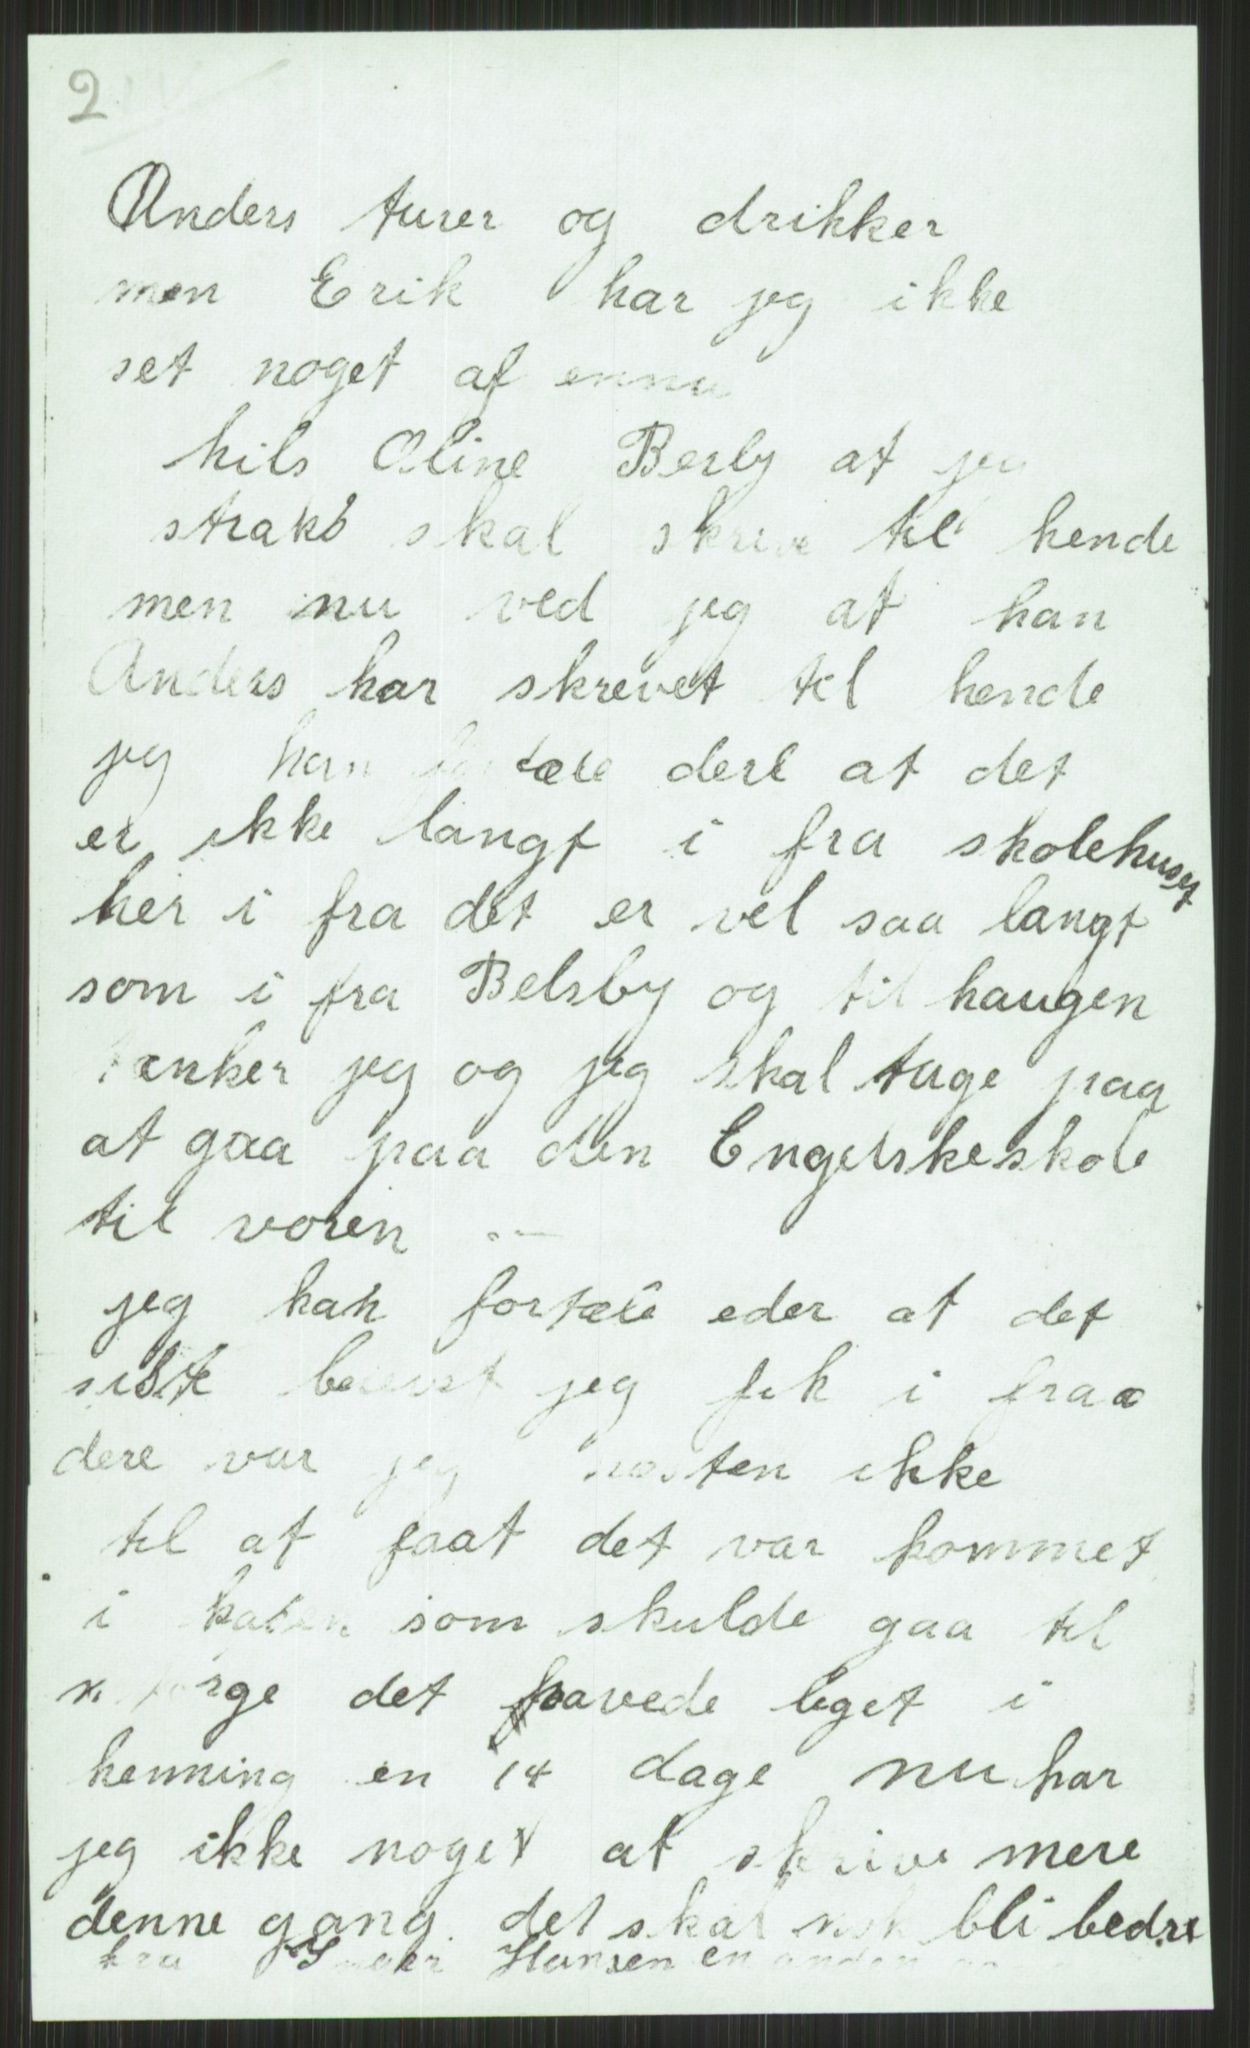 2
Anders turer og drikker
men Erik har jeg ikke
set noget af ennu
hils Oline Berby at jeg
straks skal skrive til hende
men nu ved jeg at han
Anders har skrevet til hende
jeg kan dere at det
er ikke langt i fra skolehuset
her i fra det er vel saa langt
som i fra Belsby og til haugen
tænker jeg og jeg skal tage paa
at gaa paa den Engelskeskole
til voren
jeg kan fortæle eder at det
siste jeg fik i fraa
dere var jeg næsten ikke
til at faat det var kommet
i som skulde gaa til
norge det havede liget i
henning en 14 dage nu har
jeg ikke noget at skrive mere
denne gang det skal nok bli bedre
fra Hansen en anden